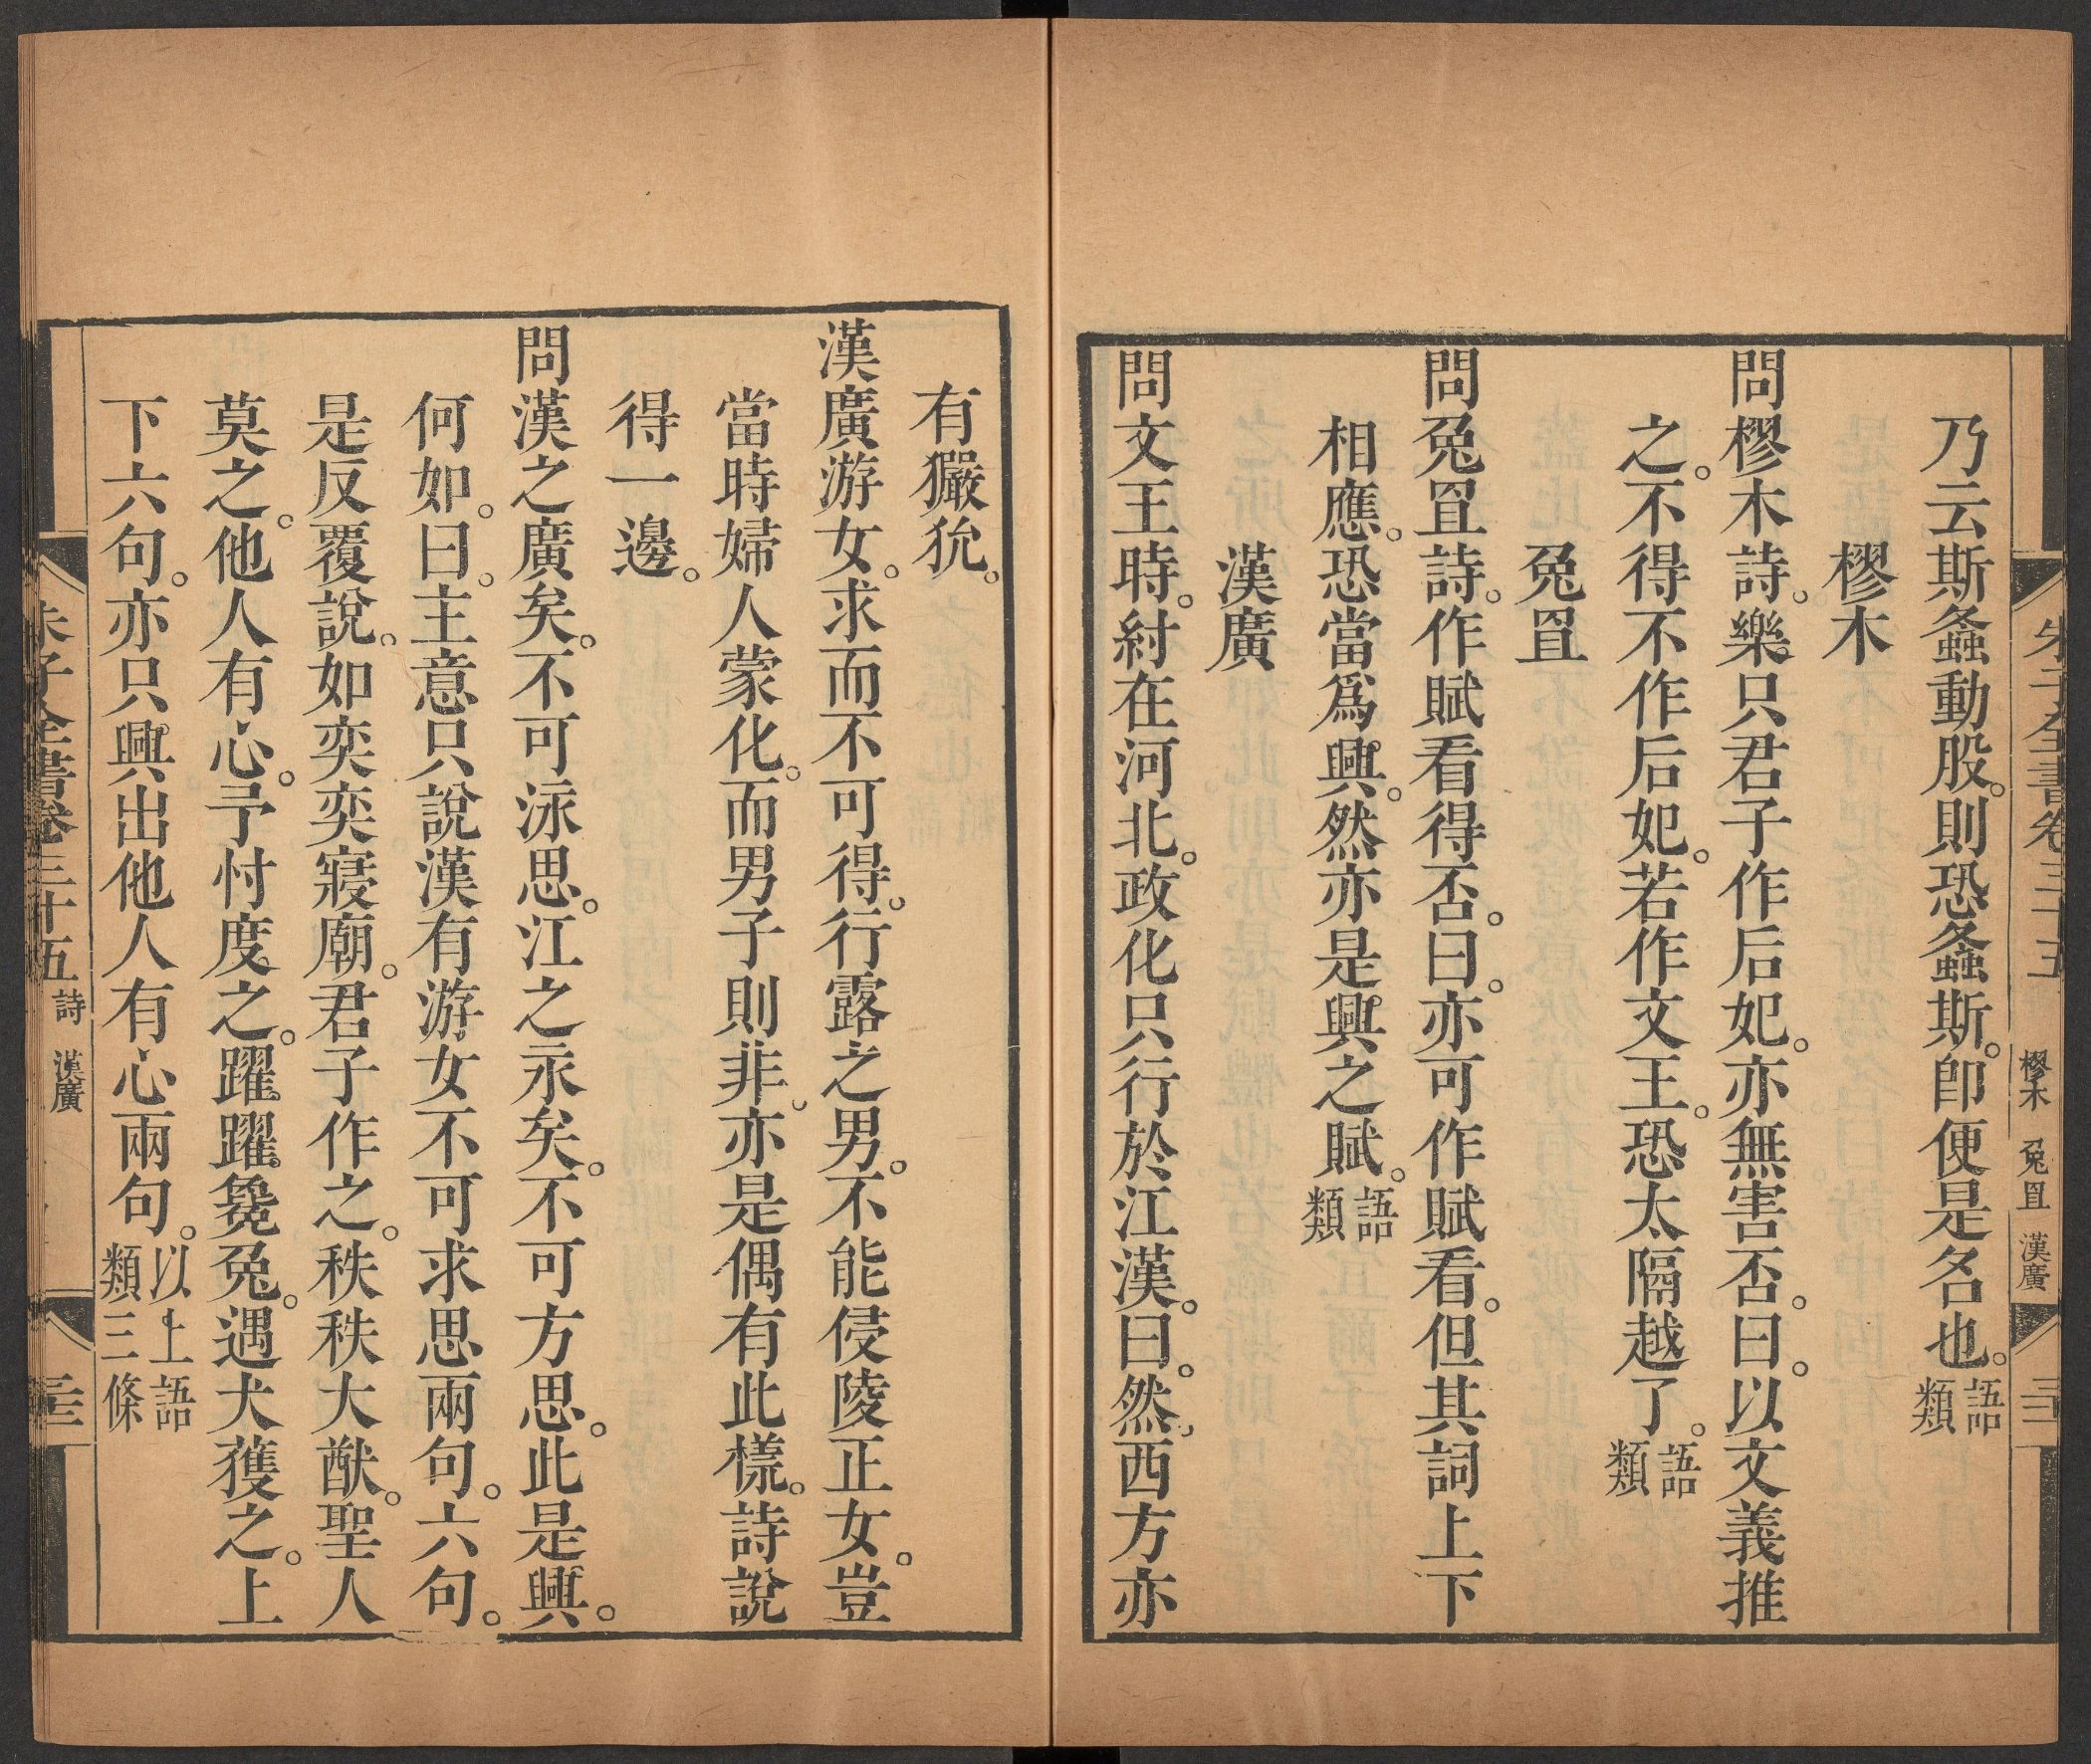 朱子全書卷三十五 樛木 兔罝 漢廣
乃云斯螽動股。則恐螽斯。卽便是名也。語類
樛木
問樛木詩。樂只君子作后妃。亦無害否。曰。以文義推
之。不得不作后妃。若作文王。恐太隔越了。語類
兔罝
問兔罝詩。作賦看得否。曰。亦可作賦看。但其詞上下
相應。恐當爲興。然亦是興之賦。語類
漢廣
問文王時。紂在河北。政化只行於江漢。曰。然。西方亦
有玁狁。
漢廣游女。求而不可得。行露之男。不能侵陵正女。豈
當時婦人蒙化。而男子則非。亦是偶有此樣。詩說
得一邊。
問漢之廣矣。不可泳思。江之永矣。不可方思。此是興。
何如。曰。主意只說漢有游女不可求思兩句。六句。
是反覆說。如奕奕寢廟。君子作之。秩秩大猷。聖人
莫之。他人有心。予忖度之。躍躍毚兔。遇犬獲之。上
下六句。亦只興出他人有心兩句。以上語類三條
朱子全書卷三十五 詩 漢廣